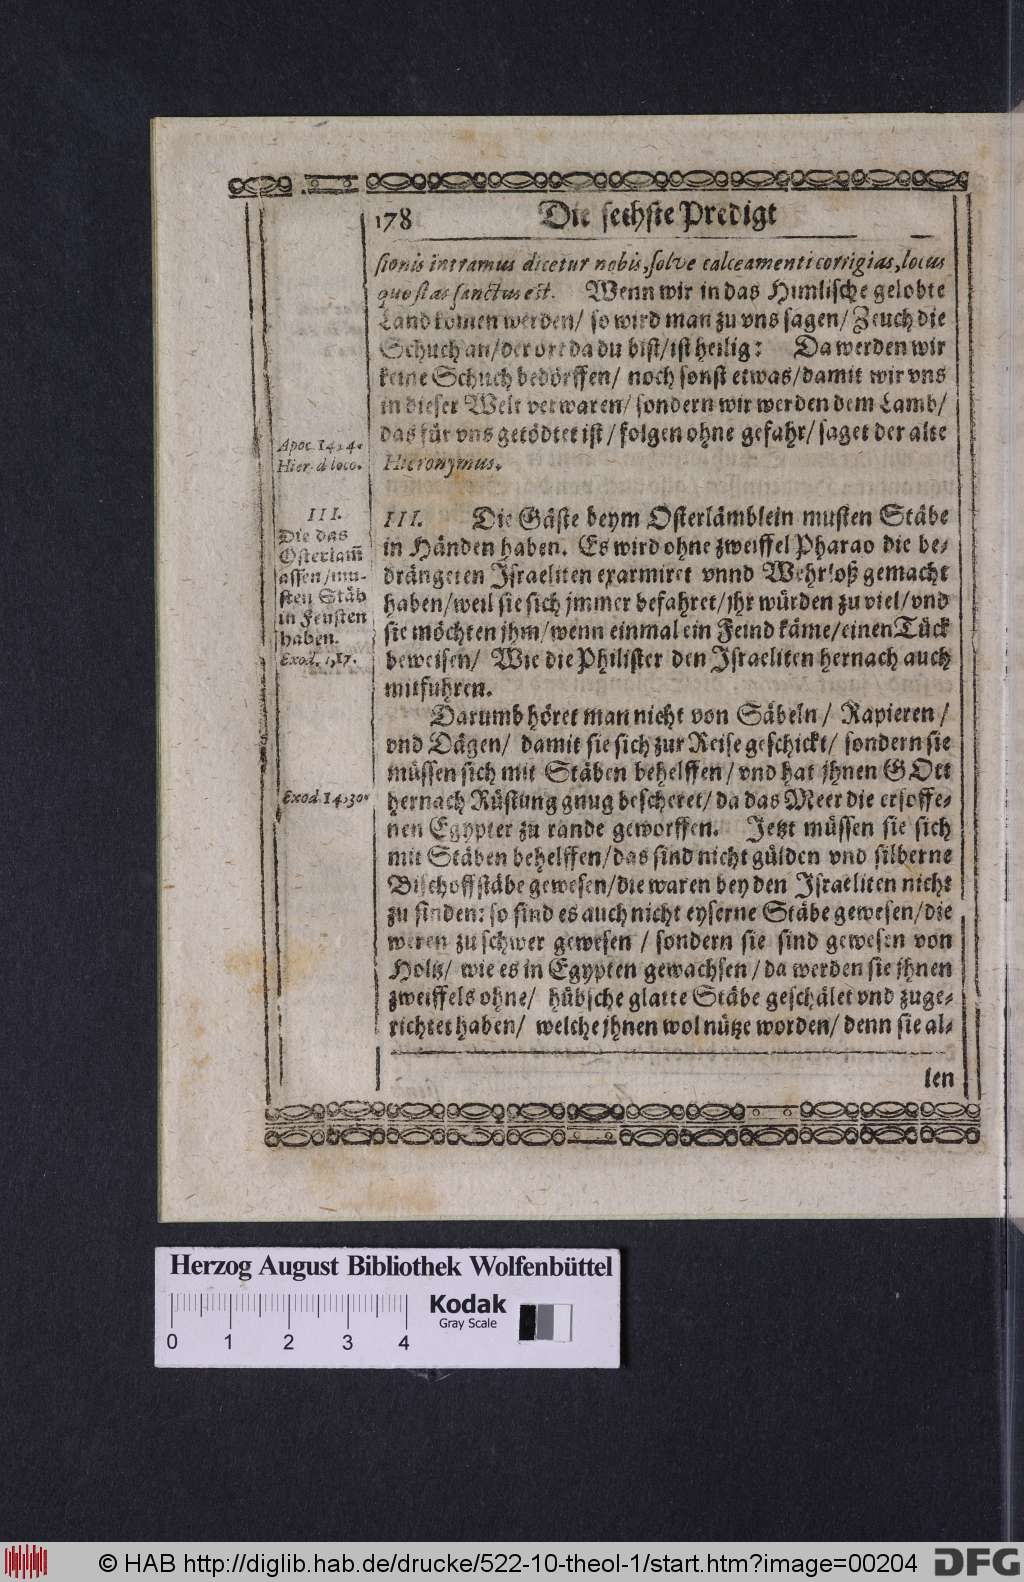 178 Die sechste Predigt
sionis intramus dicetur nobis, solve calceamenti corrigias, locus
quo stas sanctus est. Wenn wir in das Himlische gelobte
Land komen werden/ so wird man zu vns sagen/ Zeuch die
Schuch an/ der ort da du bist/ ist heilig: Da werden wir
keine Schuch bedörffen/ noch sonst etwas/ damit wir vns
in dieser Welt verwaren/ sondern wir werden dem Lamb/
das für vns getödtet ist/ folgen ohne gefahr/ saget der alte
Hieronymus.
Apoc. 14,4.
Hier. d loco.
III.
Die das
Osterlam̃
assen/ mu-
sten Stäb
in Fensten
haben.
Exod. 1,17.
III. Die Gäste beym Osterlämblein musten Stäbe
in Händen haben. Es wird ohne zweiffel Pharao die be-
drängeten Israeliten exarmiret vnnd Wehrloß gemacht
haben/ weil sie sich jmmer befahret/ jhr würden zu viel/ vnd
sie möchten jhm/ wenn einmal ein Feind käme/ einen Tück
beweisen/ Wie die Philister den Israeliten hernach auch
mitfuhren.
Darumb höret man nicht von Säbeln/ Rapieren/
vnd Dägen/ damit sie sich zur Reise geschickt/ sondern sie
müssen sich mit Stäben behelffen/ vnd hat jhnen GOtt
Exod. 14,30.
hernach Rüstung gnug bescheret/ da das Meer die ersoffe-
nen Egypter zu rande geworffen. Jetzt müssen sie sich
mit Stäben behelffen/ das sind nicht gülden vnd silberne
Bischoffstäbe gewesen/ die waren bey den Israeliten nicht
zu finden: so sind es auch nicht eyserne Stäbe gewesen/ die
weren zu schwer gewesen/ sondern sie sind gewesen von
Holtz/ wie es in Egypten gewachsen/ da werden sie jhnen
zweiffels ohne/ hübsche glatte Stäbe geschälet vnd zuge-
richtet haben/ welche jhnen wol nütze worden/ denn sie al-
len
Herzog August Bibliothek Wolfenbüttel
Kodak
Gray Scale
0 1 2 3 4
© HAB http://diglib.hab.de/drucke/522-10-theol-1/start.htm?image=00204
DFG